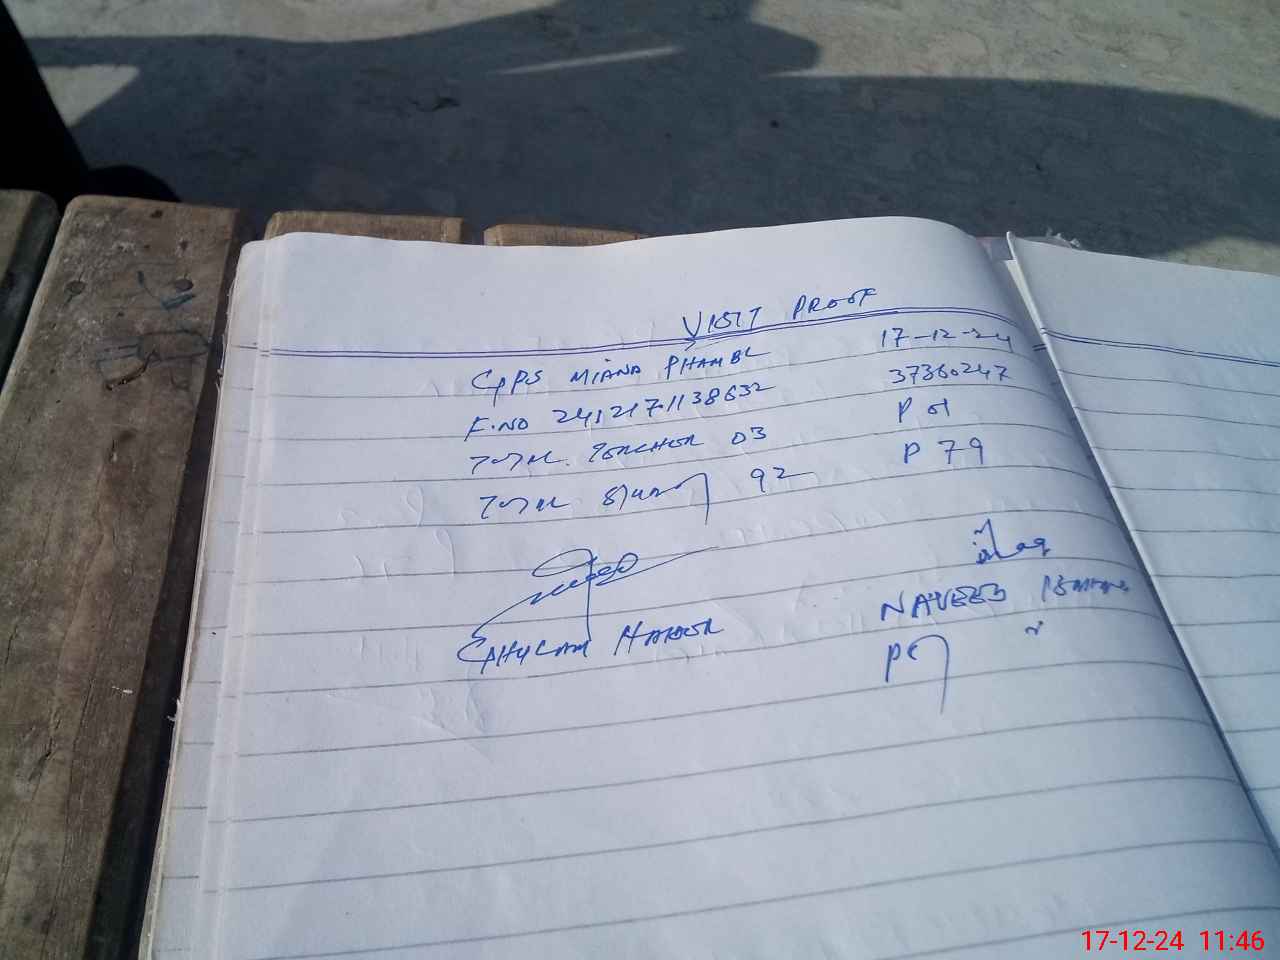 VISIT PROOF
GPPS MIANA PHAMBL 17-12-24
F.NO 2412171138632 37360247
TOTAL TEACHER 03 P 01
TOTAL 92 P 79
GHULAM HAIDER NAVEED
17-12-24 11:46